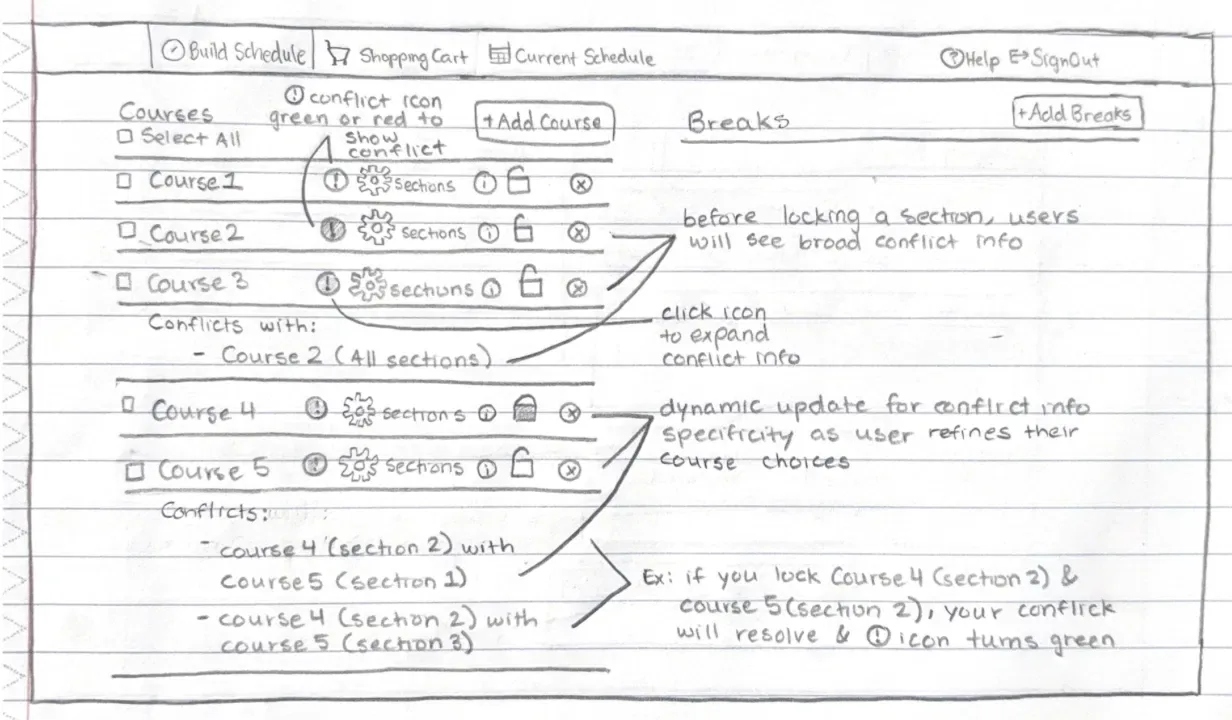 Build Schedule
Shopping Cart
Current Schedule
Help
Sign Out
Courses
Select All
conflict icon
green or red to
show
conflict
+ Add Course
Breaks
+ Add Breaks
Course 1
sections
Course 2
sections
Course 3
sections
Conflicts with:
- Course 2 (All sections)
before locking a section, users
will see broad conflict info
click icon
to expand
conflict info
Course 4
sections
Course 5
sections
dynamic update for conflict info
specificity as user refines their
course choices
Conflicts:
- course 4 (section 2) with
course 5 (section 1)
- course 4 (section 2) with
course 5 (section 3)
Ex: if you lock Course 4 (section 2) &
course 5 (section 2), your conflick
will resolve & ! icon turns green